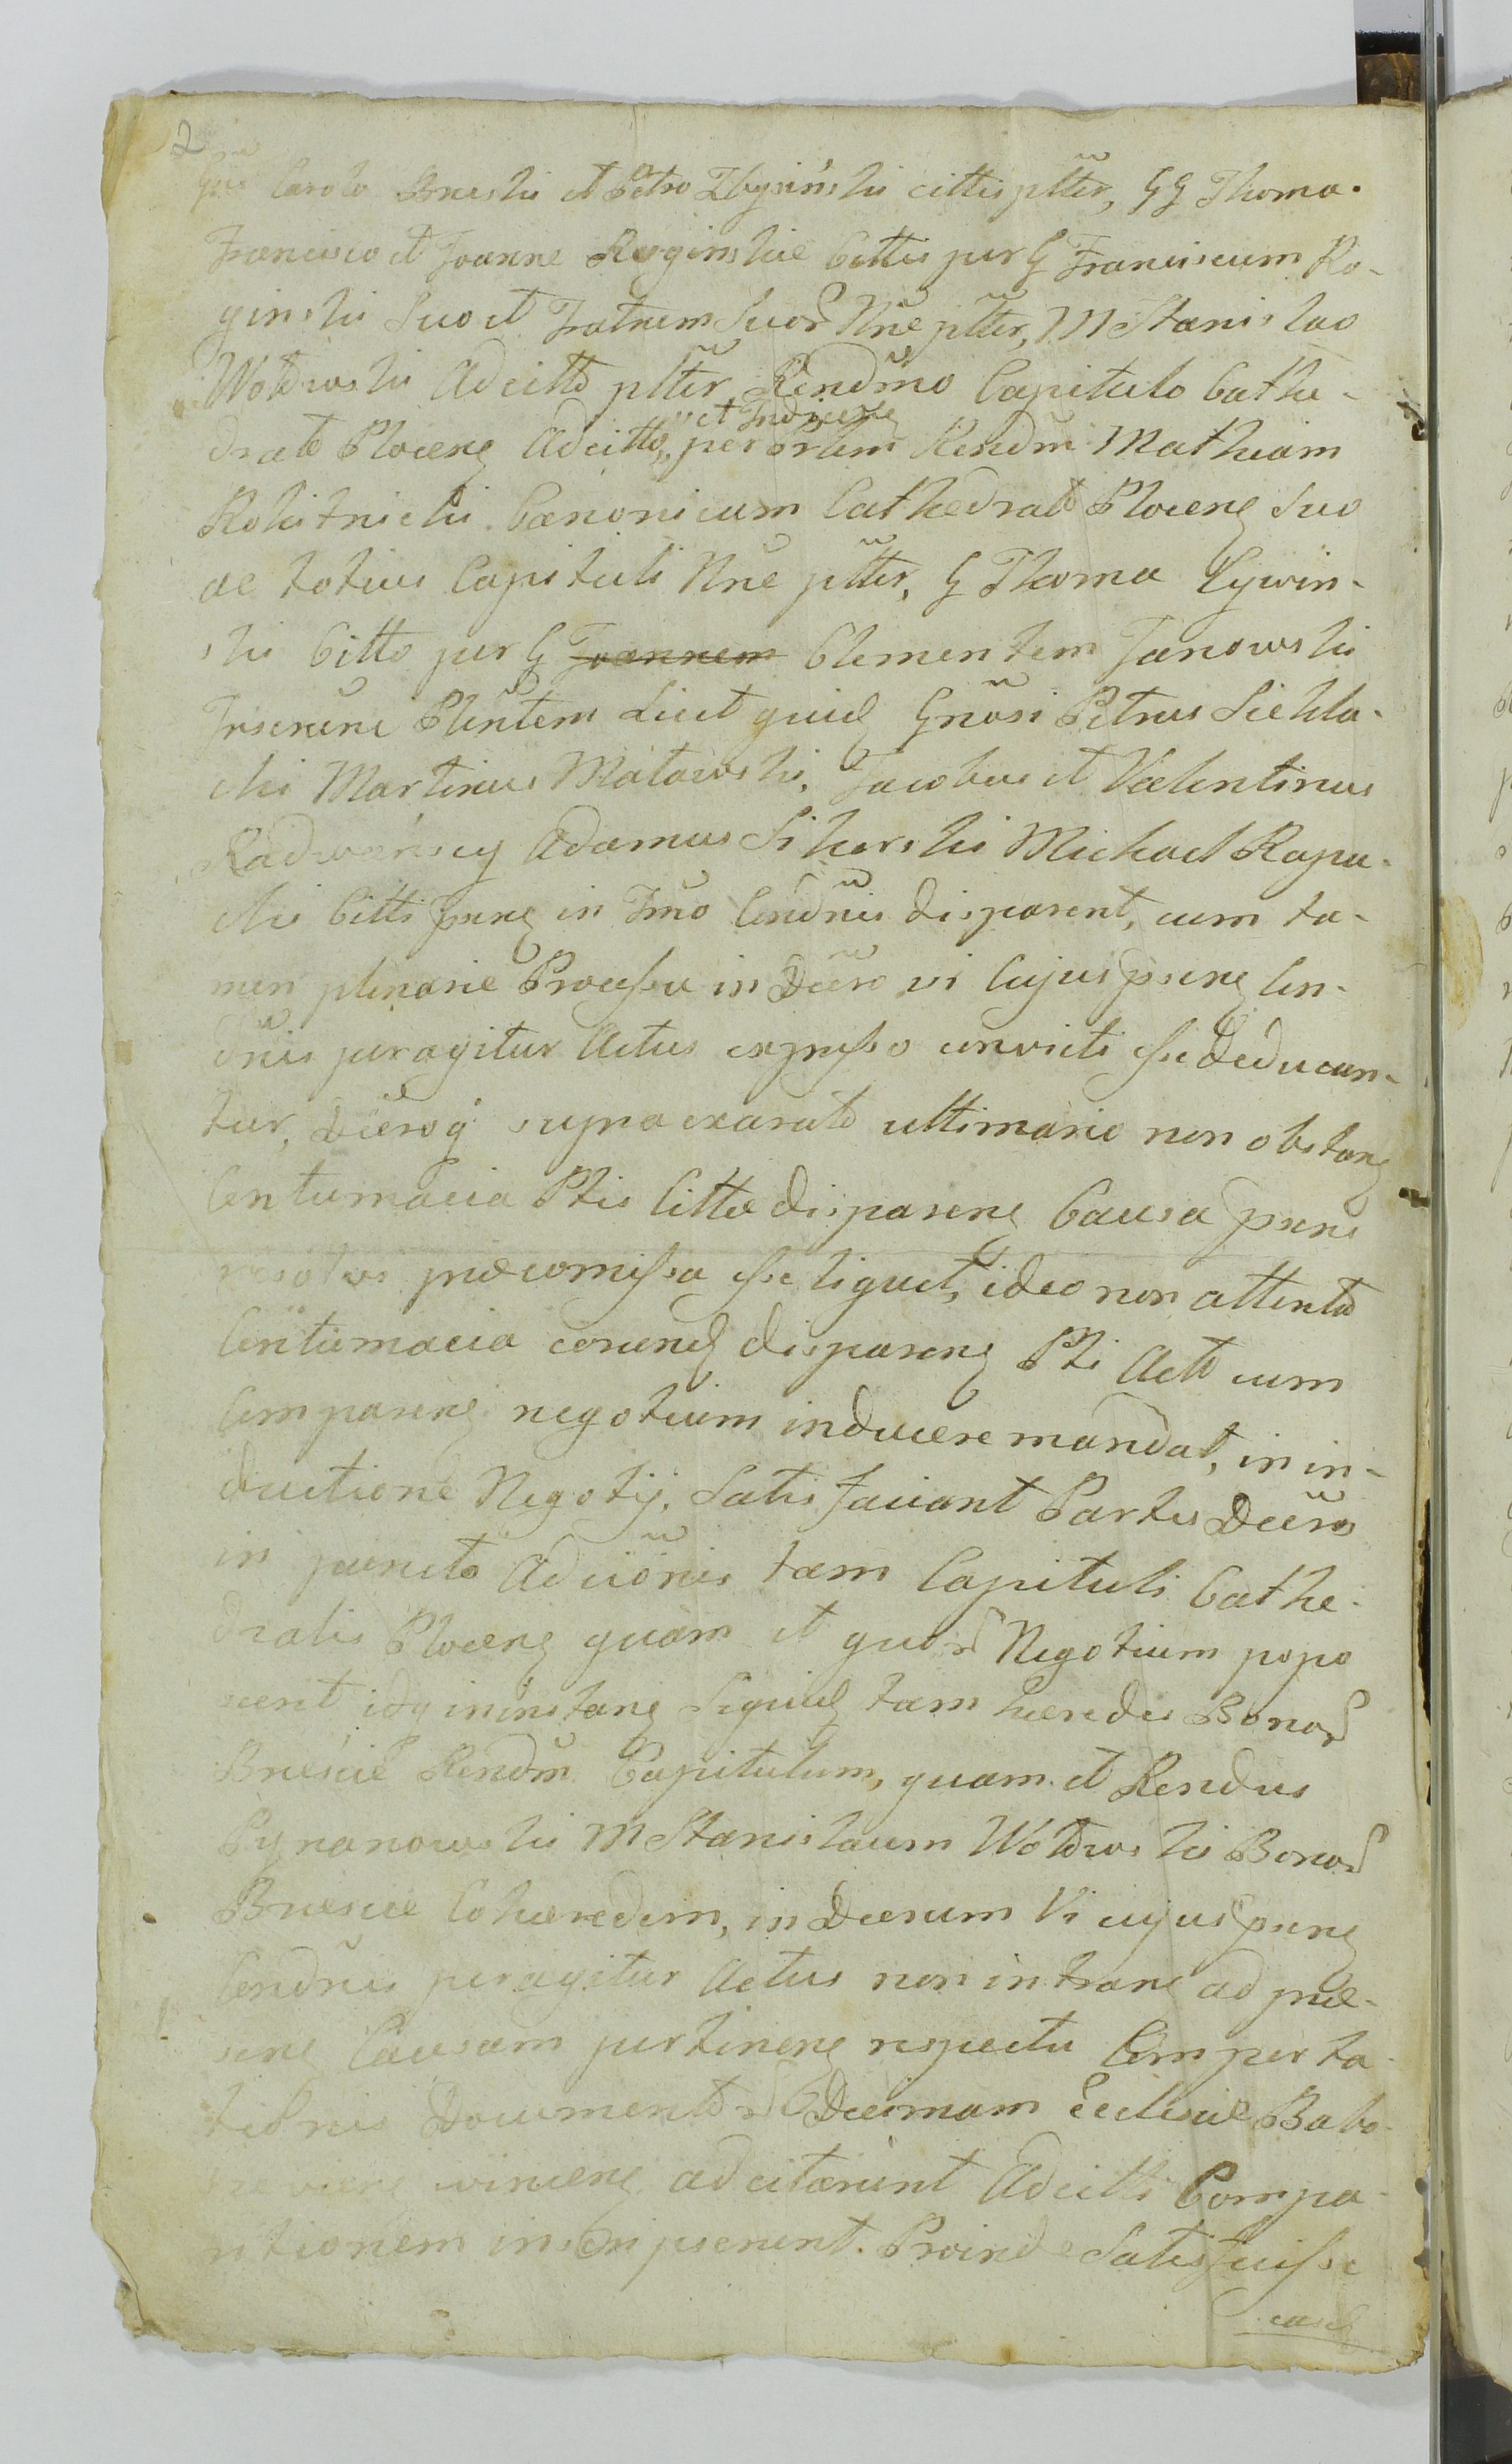 2
Carolo Brzeski et Petro Zbyszinski cittis pltter, GG Thoma.
Francisco et Joanne Roginskie Cittis per G Franciscum Ro-
ginski Suo et Fratrum Suor Nne pltter, M Stanislao
Wołowski Adcitto pltter Rendmo Capitulo Cathe-
drali Plocens Adcitto, et Inducens per Rendm Mathiam
Rokitnicki Canonicum Cathedral Plocens Suo
ac totius Capituli Nne pltter, G Thoma Cywin-
ski Citto per G Joannem Clementem Janowski
Plentem Licet quid Gnosi Petrus Siekla-
cki Martinus Matowski, Jacobus et Valentinus
Radwanscy Adamus Sikorski Michael Rapa-
cki Citti in Tmo Condnis disparent, cum ta-
men plenarie Processu in Decro vi cujus psens Con-
dnis peragitur Actus expresso convicti esse deducan-
tur, Decroq supra exarato ultimario non obstans
Contumacia Ptis Cittae disparens Causa psens
praecomissa esse liquet, ideo non attenta
Contumacia eorund disparens Pti Acto cum
Comparens negotium inducere mandat, in in-
ductione Negotij. Satis faciant Partes Decro
in puncto Adcitonis tam Capituli Cathe-
dralis Plocens quam et quor Negotium popo
scerit idq ininstans Siquid tam haeredes Bonor
Brzescie Rendm Capitulum, quam et Rendus
Pynanowski M Stanislaum Wołowski Bonor
Brzescie Cohaeredem, in Decrum Vi cujus psens
Condnis peragitur Actus non intrans ad prae-
sens Causam pertinens respectu Comporta-
tionis Documentor Decimam Ecclesiae Babo-
adcitarunt Adcitti Compa-
ritionem inscripserunt. Proinde Satisfuisse